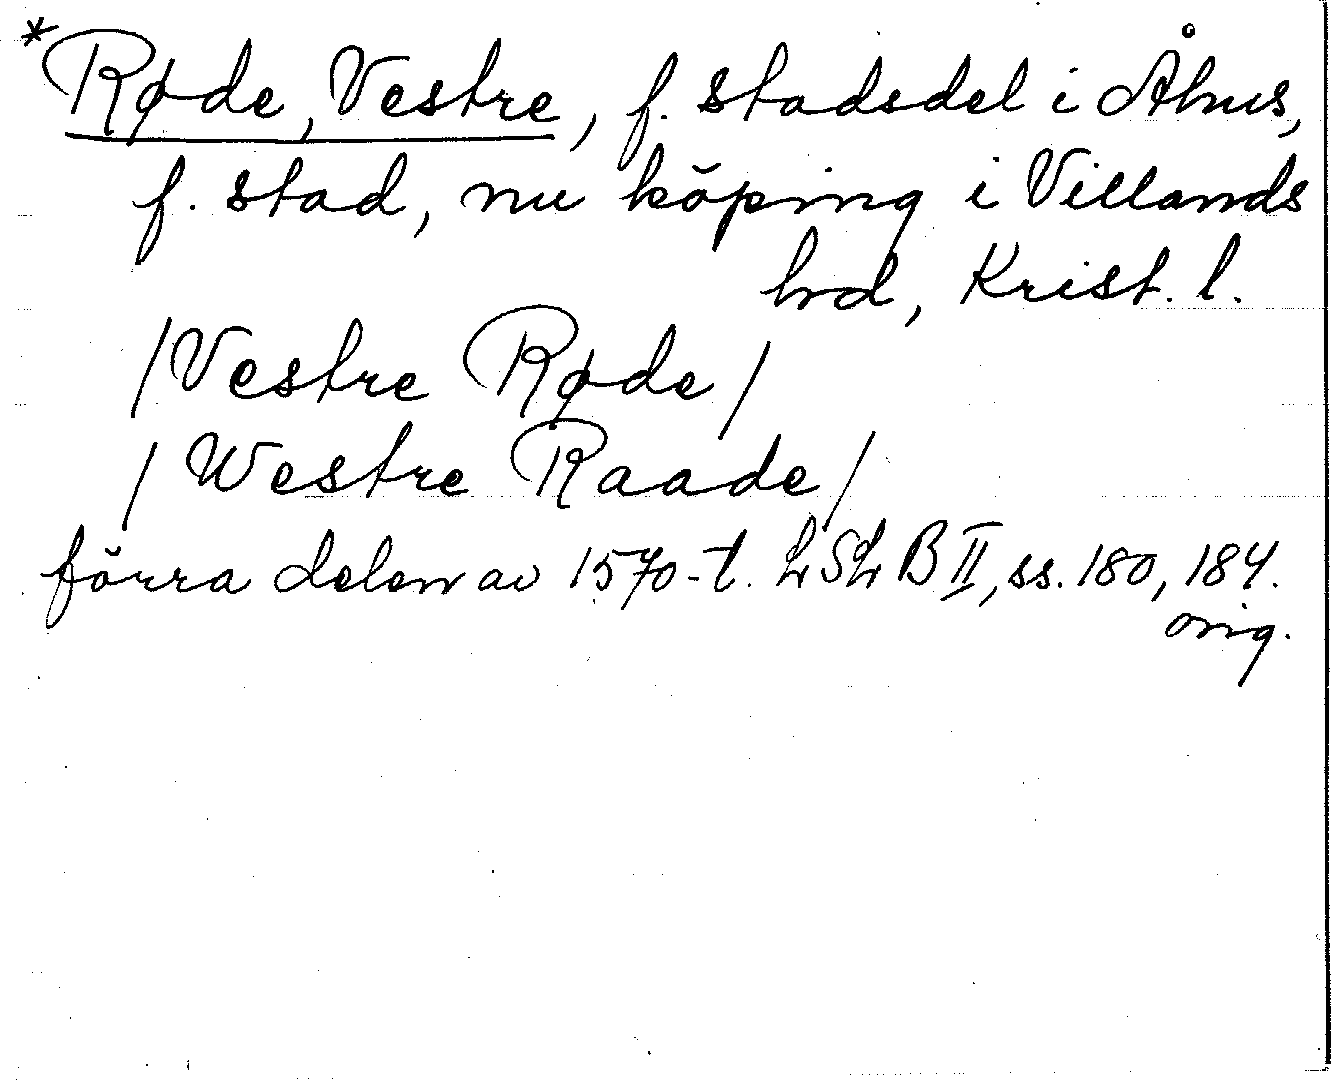 *Røde, Vestre, f. stadsdel i Åhus,
f. stad, nu köping i Villands
hd, Krist. l.
/Vestre Røde/
/Westre Raade/
förra delen av 1570-t. LSL B II, ss. 180, 184.
orig.